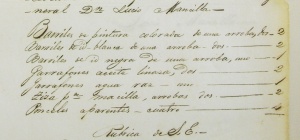 neral Dn Lucio Mansilla
Barriles de pintura colorada de una arroba, dos 2
Barriles de id. blanca de una arroba dos 2
Barriles de id negra de una arroba, un 1
Garrafones aceite linasa, dos 2
Garrafones agua raz un 1
Tiza pa masilla, arrobas, dos 2
Pinceles aparentes cuatro 4
Música de S.E.